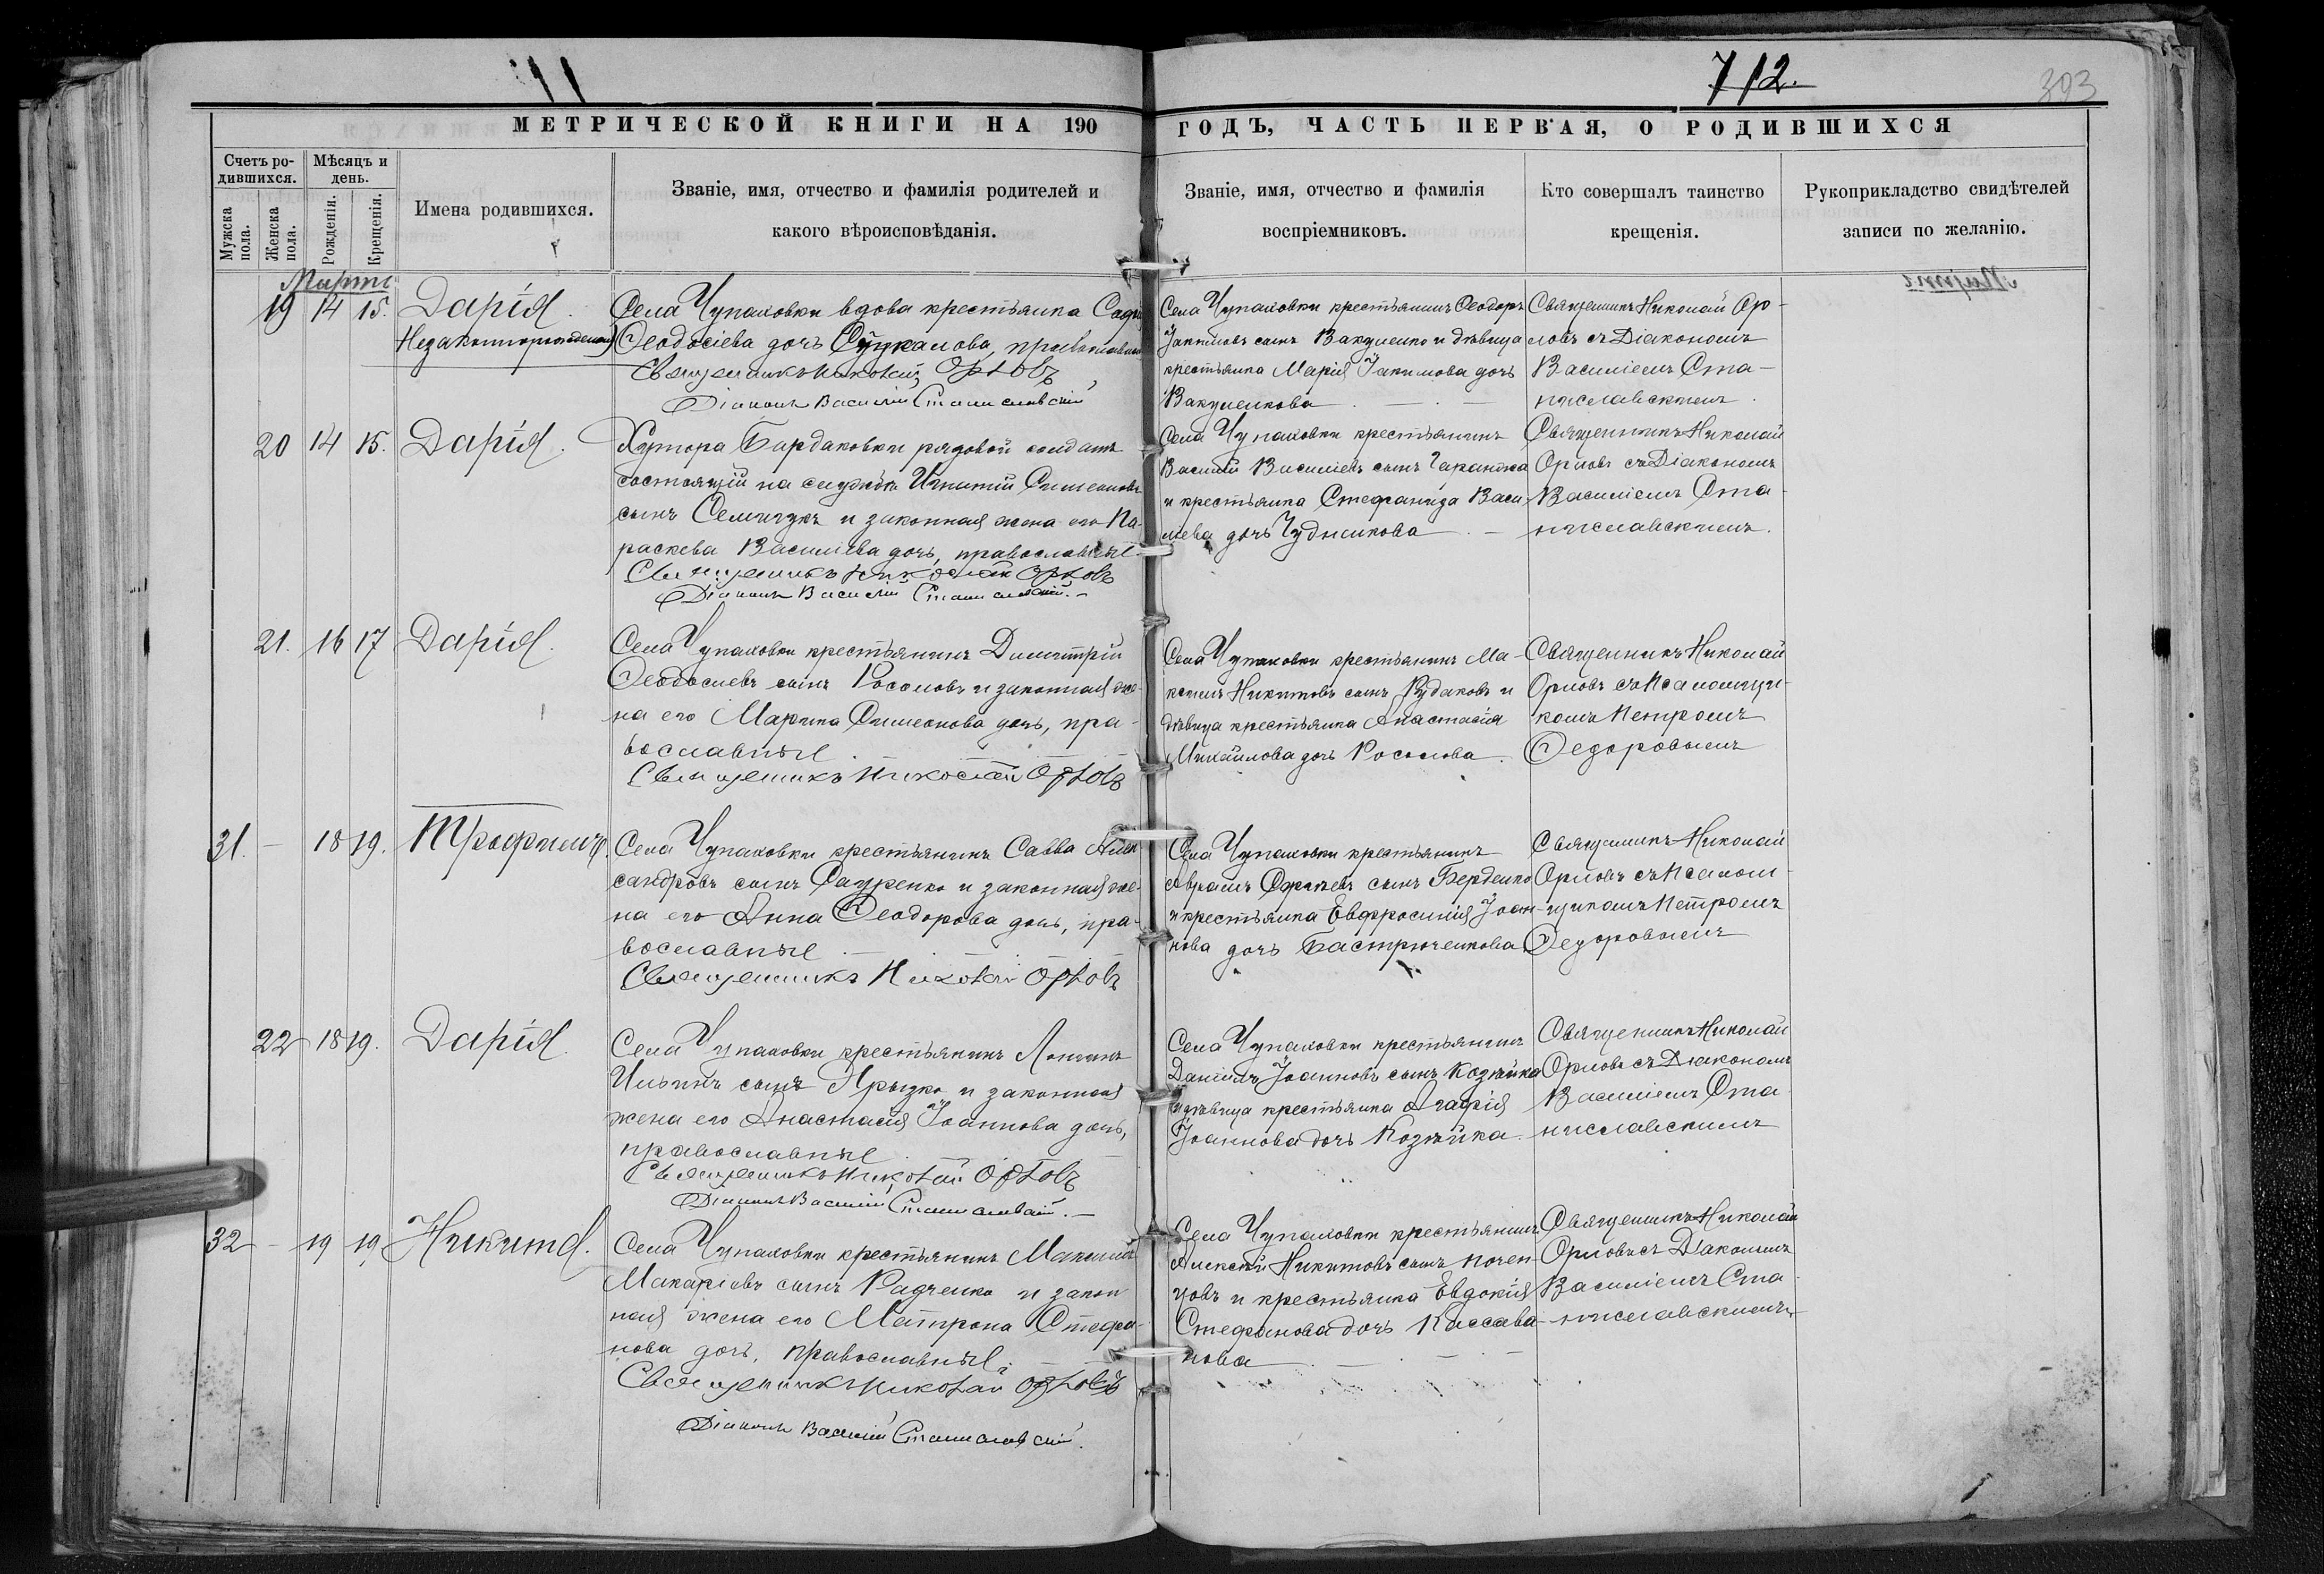 11
712.
393
МЕТРИЧЕСКОЙ КНИГИ НА 190 ГОДЪ, ЧАСТЬ ПЕРВАЯ, О РОДИВШИХСЯ
Счетъ ро-
дившихся.
Мужска
пола.
Женска
пола.
Мѣсяцъ и
день.
Рожденія.
Крещенія.
Имена родившихся.
Званіе, имя, отчество и фамилія родителей и
какого вѣроисповѣданія.
Званіе, имя, отчество и фамилія
воспріемниковъ.
Кто совершалъ таинство
крещенія.
Рукоприкладство свидѣтелей
записи по желанію.
Мартъ
19 14 15. Дарія.
Незаконнорожденная
Села Чупаховки вдова крестьянка
Ѳеодосіева дочь православная
Священникъ Николай Орловъ
Діаконъ Василій Станиславскій
Села Чупаховки крестьянинъ Ѳеодоръ
Іакимовъ сынъ Вакуленко и дѣвица
крестьянка Марія Іакимова дочь
Вакуленкова
Священникъ Николай Ор-
ловъ съ Діакономъ
Василіемъ Ста-
ниславскимъ.
20 14 15. Дарія.
Хутора Бардаковки рядовой солдатъ
состоящій на службѣ Игнатій Симеоновъ
сынъ и законная жена его Па-
раскева Василіева дочь, православные
Священникъ Николай Орловъ
Діаконъ Василій Станиславскій.
Села Чупаховки крестьянинъ
Василій Василіевъ сынъ Гаранжа
и крестьянка Стефанида Васи-
ліева дочь Чудникова
Священникъ Николай
Орловъ съ Діакономъ
Василіемъ Ста-
ниславскимъ.
21. 16 17 Дарія.
Села Чупаховки крестьянинъ Димитрій
Ѳеодосіевъ сынъ Росоловъ и законная же-
на его Марина Симеонова дочь, пра-
вославные
Священникъ Николай Орловъ
Села Чупаховки крестьянинъ Ма-
ксимъ Никитовъ сынъ Рудаковъ и
дѣвица крестьянка Анастасія
Михайлова дочь Росолова.
Священникъ Николай
Орловъ съ Псаломщи-
комъ Петромъ
Ѳедоровымъ
31. – 18 19. Трофимъ.
Села Чупаховки крестьянинъ Савва Алек
сандровъ сынъ и законная же-
на его Анна Ѳеодорова дочь, пра-
вославные
Священникъ Николай Орловъ
Села Чупаховки крестьянинъ
Авраамъ сынъ Берденко
и крестьянка Евфросинія Іоан-
нова дочь Бастрюченкова
Священникъ Николай
Орловъ съ Псалом-
щикомъ Петромъ
Ѳедоровымъ
22 18 19. Дарія.
Села Чупаховки крестьянинъ Логинъ
Ильинъ сынъ и законная
жена его Анастасія Іоаннова дочь,
православные
Священникъ Николай Орловъ
Діаконъ Василій Станиславскій.
Села Чупаховки крестьянинъ
Даніилъ Іоанновъ сынъ Козейка
и дѣвица крестьянка Агафія
Іоаннова дочь Козейка.
Священникъ Николай
Орловъ съ Діакономъ
Василіемъ Ста-
ниславскимъ
32 – 19 19 Никита.
Села Чупаховки крестьянинъ
Макаріевъ сынъ Радченко и закон
ная жена его Матрона Стефа-
нова дочь, православные
Священникъ Николай Орловъ
Діаконъ Василій Станиславскій.
Села Чупаховки крестьянинъ
Алексѣй Никитовъ сынъ
и крестьянка Евдокія
Стефанова дочь
нова
Священникъ Николай
Орловъ съ Діакономъ
Василіемъ Ста-
ниславскимъ